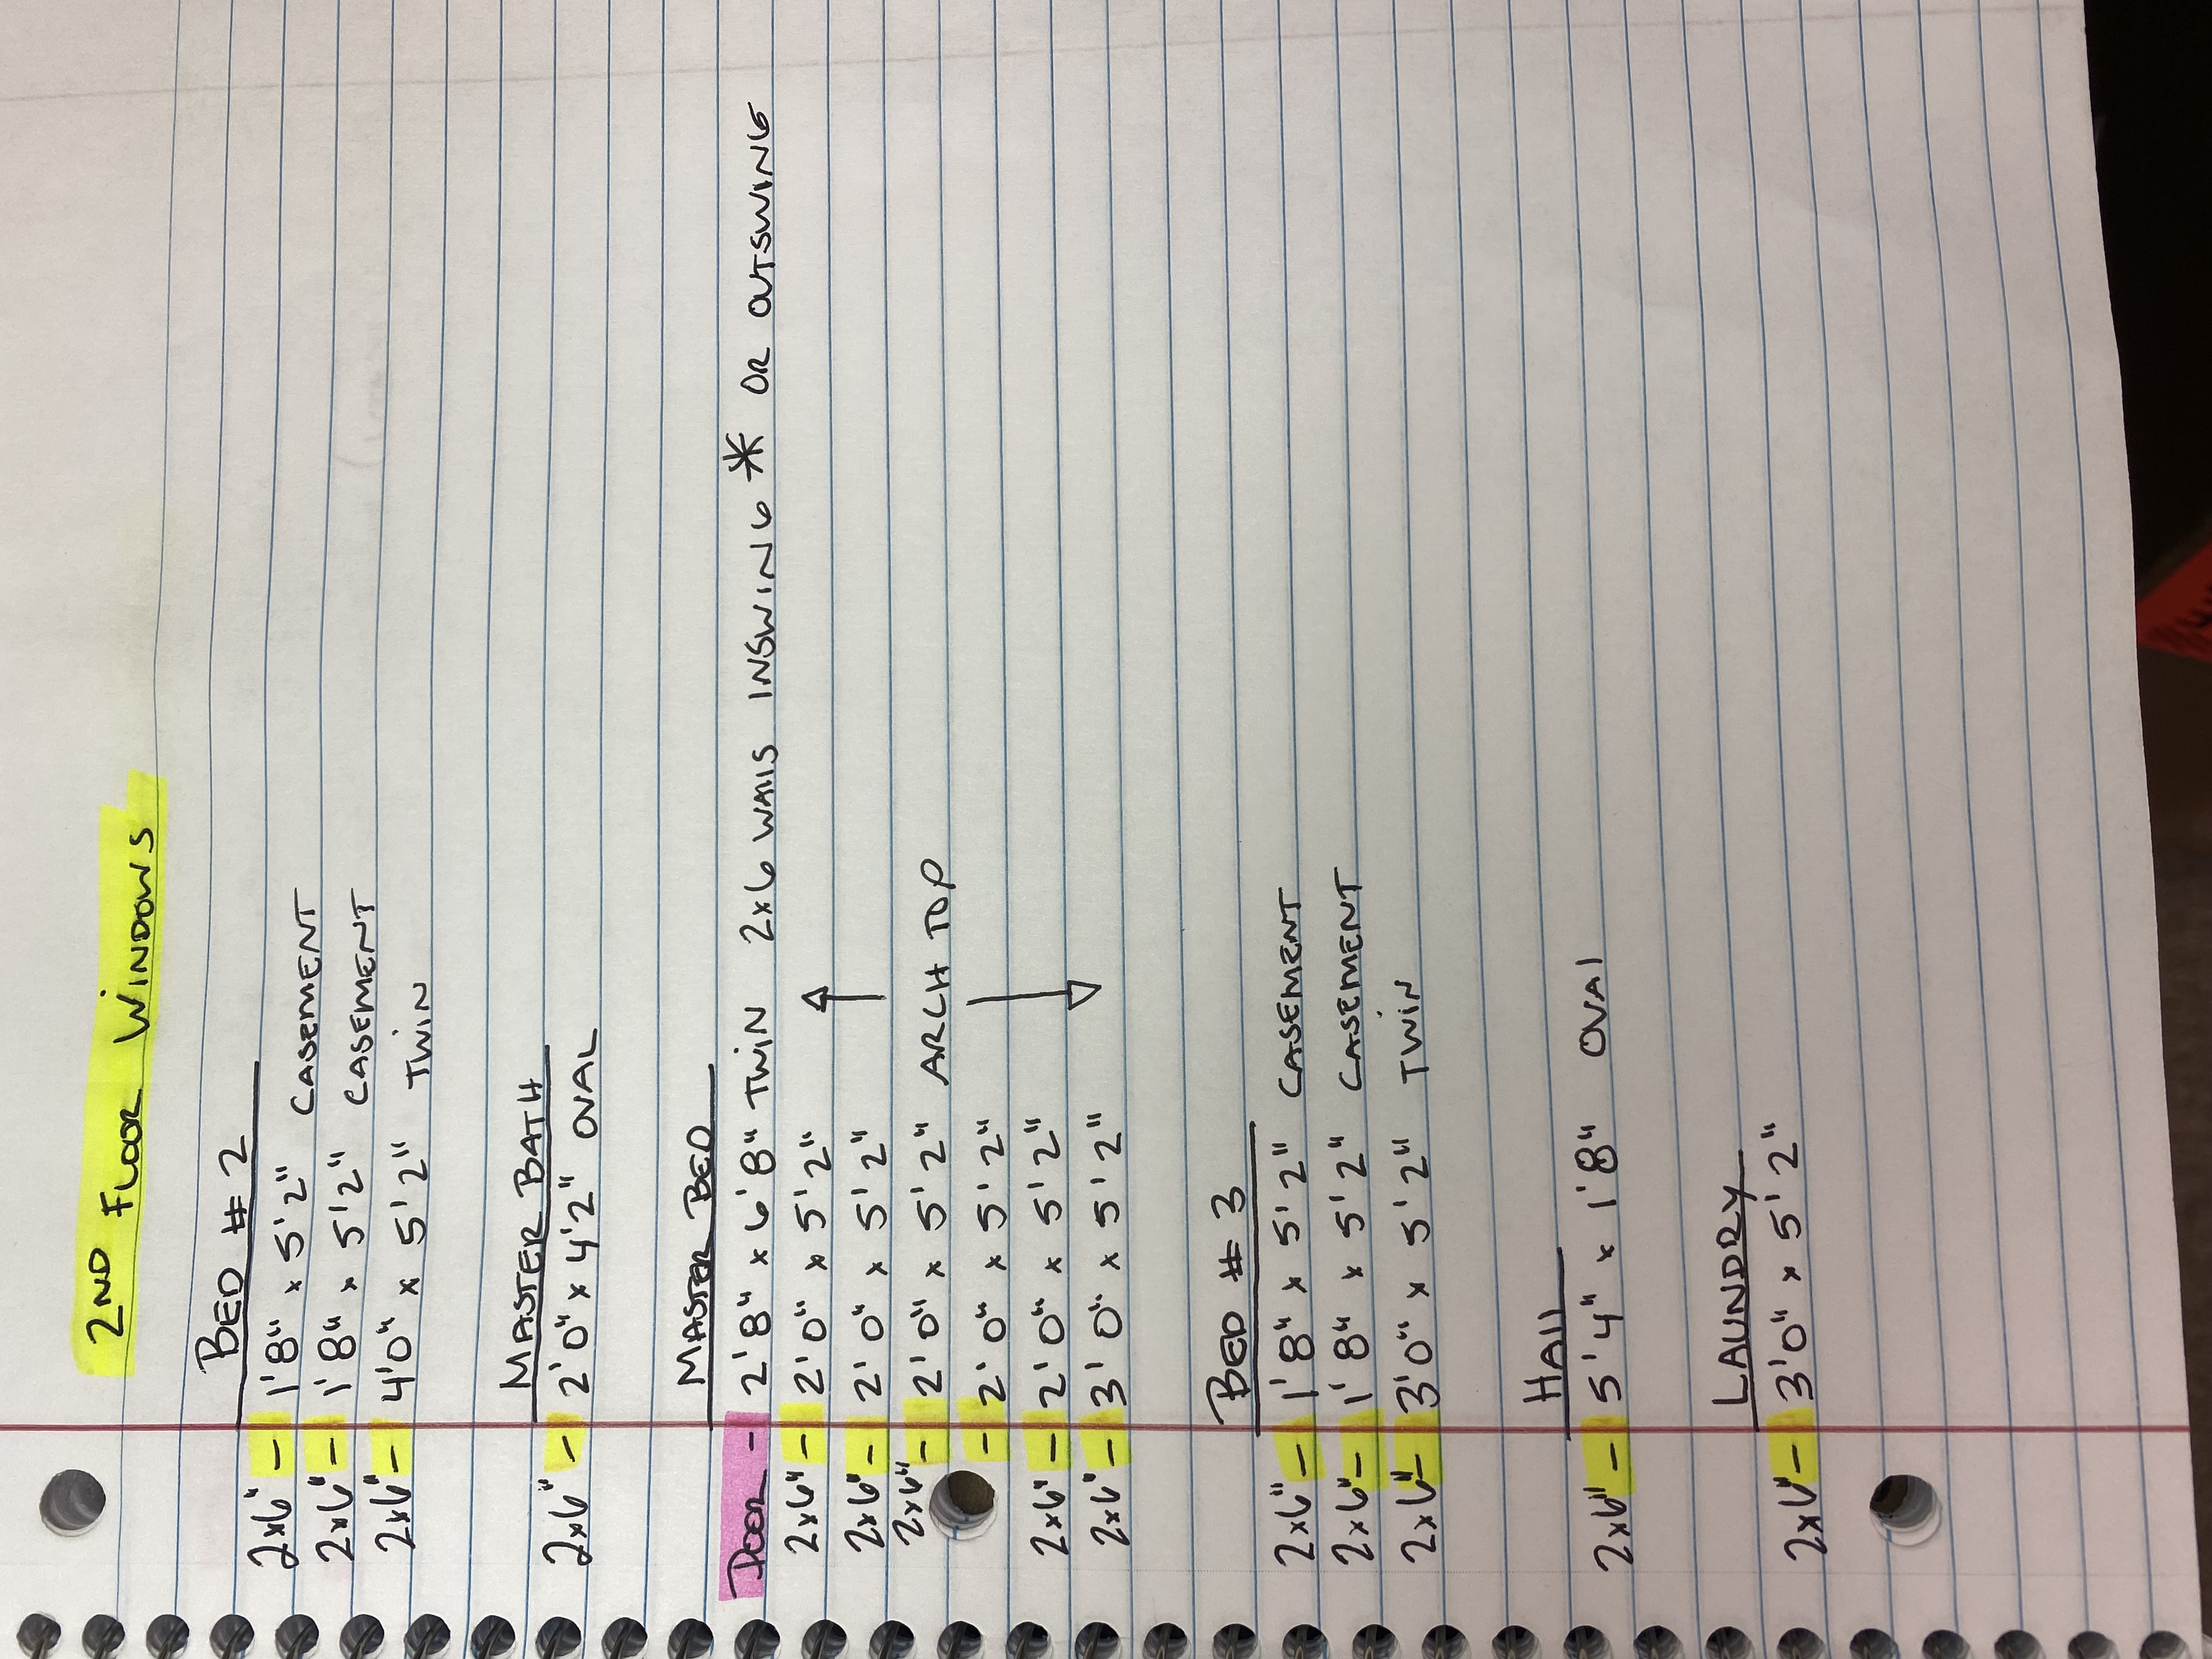 2ND FLOOR WINDOWS
BED #2
2x6" - 1'8" x 5'2" CASEMENT
2x6" - 1'8" x 5'2" CASEMENT
2x6" - 4'0" x 5'2" TWIN
MASTER BATH
2x6" - 2'0" x 4'2" OVAL
MASTER BED
DOOR - 2'8" x 6'8" TWIN 2x6 WALLS INSWING * OR OUTSWING
2x6" - 2'0" x 5'2"
2x6" - 2'0" x 5'2"
2x6" - 2'0" x 5'2" ARCH TOP
- 2'0" x 5'2"
2x6" - 2'0" x 5'2"
2x6" - 3'0" x 5'2"
BED #3
2x6" - 1'8" x 5'2" CASEMENT
2x6" - 1'8" x 5'2" CASEMENT
2x6" - 3'0" x 5'2" TWIN
HALL
2x6" - 5'4" x 1'8" OVAL
LAUNDRY
2x6" - 3'0" x 5'2"